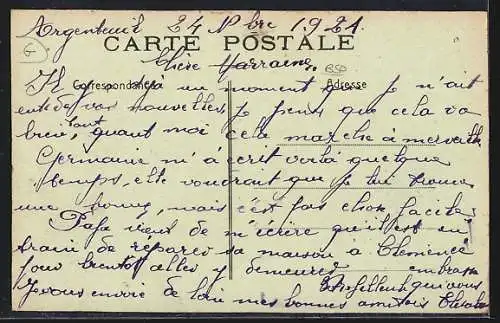 Argenteuil 24 Nbre 1921
CARTE POSTALE
Chère Marraine,
BSD
Correspondance
Adresse
Il y a déjà un moment que je n'ait
eut de vos nouvelles, je pense que cela va
bien, quant moi cela marche à merveille
Germaine m'a écrit voilà quelque
temps, elle voudrait que je lui trouve
une bonne, mais c'est pas chose facile
Papa vient de m'écrire qu'il est en
train de réparer sa maison à Clémence
pour bientôt aller y demeurer
embrasse
qui vous
Je vous envoie de loin mes bonnes amitiés